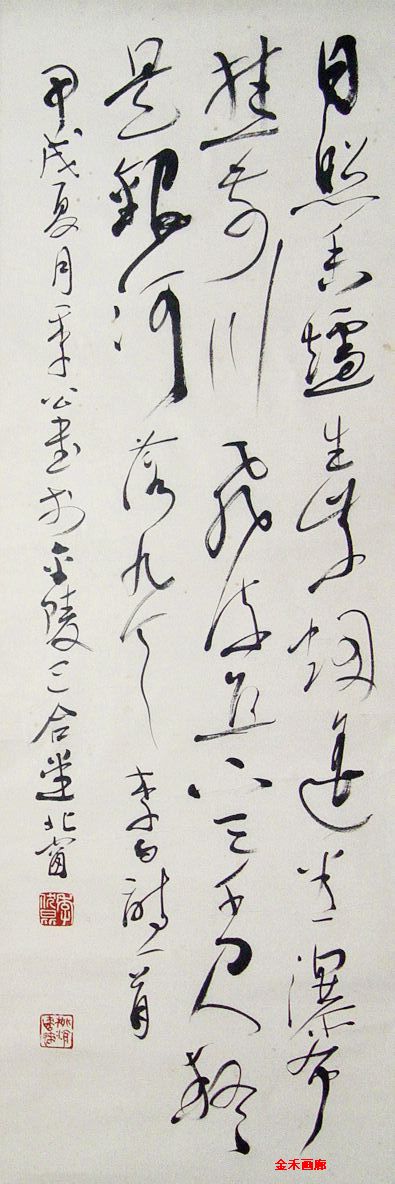 日照香爐生紫烟遥看瀑布
挂前川飛流直下三千尺疑
是銀河落九天 李白詩一首
甲戌夏月季公書於金陵三合堂北窗
金禾画廊